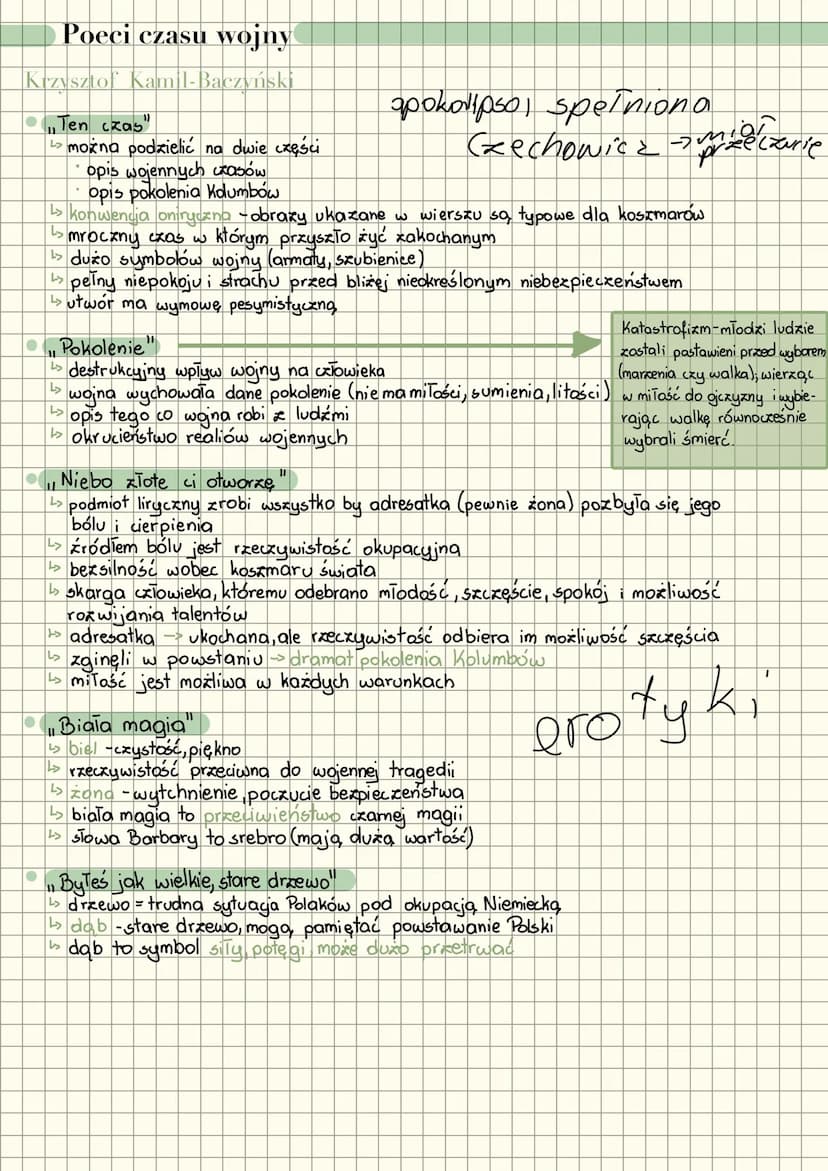 Poeci czasu wojny
Krzysztof Kamil-Baczyński
apokalipsa spełniona
Czechowicz → miał przeczucie
• „Ten czas"
↳ można podzielić na dwie części
· opis wojennych czasów
· opis pokolenia Kolumbów
↳ konwencja oniryczna - obrazy ukazane w wierszu są typowe dla koszmarów
↳ mroczny czas w którym przyszło żyć zakochanym
↳ dużo symbolów wojny (armaty, szubienice)
↳ pełny niepokoju i strachu przed bliżej nieokreślonym niebezpieczeństwem
↳ utwór ma wymowę pesymistyczną
• „Pokolenie"
↳ destrukcyjny wpływ wojny na człowieka
↳ wojna wychowała dane pokolenie (nie ma miłości, sumienia, litości)
↳ opis tego co wojna robi z ludźmi
↳ okrucieństwo realiów wojennych
Katastrofizm-młodzi ludzie
zostali postawieni przed wyborem
(marzenia czy walka); wierząc
w miłość do ojczyzny i wybie-
rając walkę równocześnie
wybrali śmierć.
• „Niebo złote ci otworzę"
↳ podmiot liryczny zrobi wszystko by adresatka (pewnie żona) pozbyła się jego
bólu i cierpienia
↳ źródłem bólu jest rzeczywistość okupacyjna
↳ bezsilność wobec koszmaru świata
↳ skarga człowieka, któremu odebrano młodość, szczęście, spokój i możliwość
rozwijania talentów
↳ adresatka → ukochana, ale rzeczywistość odbiera im możliwość szczęścia
↳ zginęli w powstaniu → dramat pokolenia Kolumbów
↳ miłość jest możliwa w każdych warunkach
erotyki
• „Biała magia"
↳ biel - czystość, piękno
↳ rzeczywistość przeciwna do wojennej tragedii
↳ żona - wytchnienie, poczucie bezpieczeństwa
↳ biała magia to przeciwieństwo czarnej magii
↳ słowa Barbary to srebro (mają dużą wartość)
• „Byłeś jak wielkie, stare drzewo"
↳ drzewo = trudna sytuacja Polaków pod okupacją Niemiecką
↳ dąb - stare drzewo, mogą pamiętać powstawanie Polski
↳ dąb to symbol siły, potęgi, może dużo przetrwać